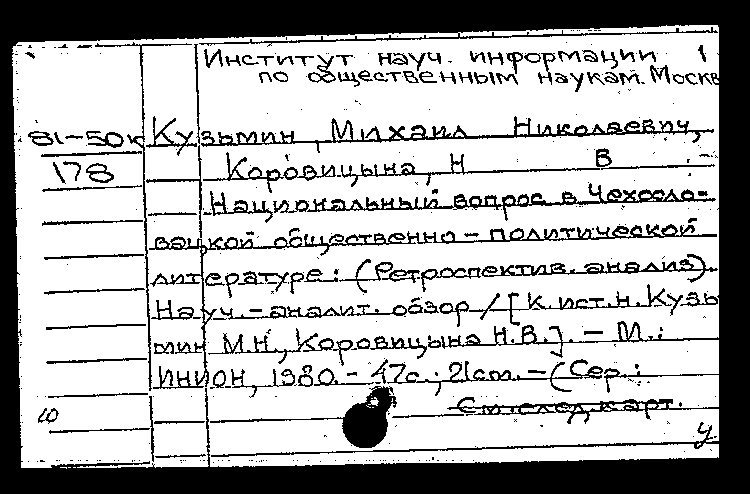 Институт науч. информации 1
по общественным наукам. Москв
81-50к Кузьмин, Михаил Николаевич,
178 Коровицына, Н В
Национальный вопрос в Чехосло-
вацкой общественно-политической
литературе: (Ретроспектив. анализ).
Науч.-аналит. обзор / [К.ист.н. Кузь
мин М.Н., Коровицына Н.В.]. - М.:
ИНИОН, 1980. - 47с.; 21cm. - (Сер.:
См. след. карт.
у